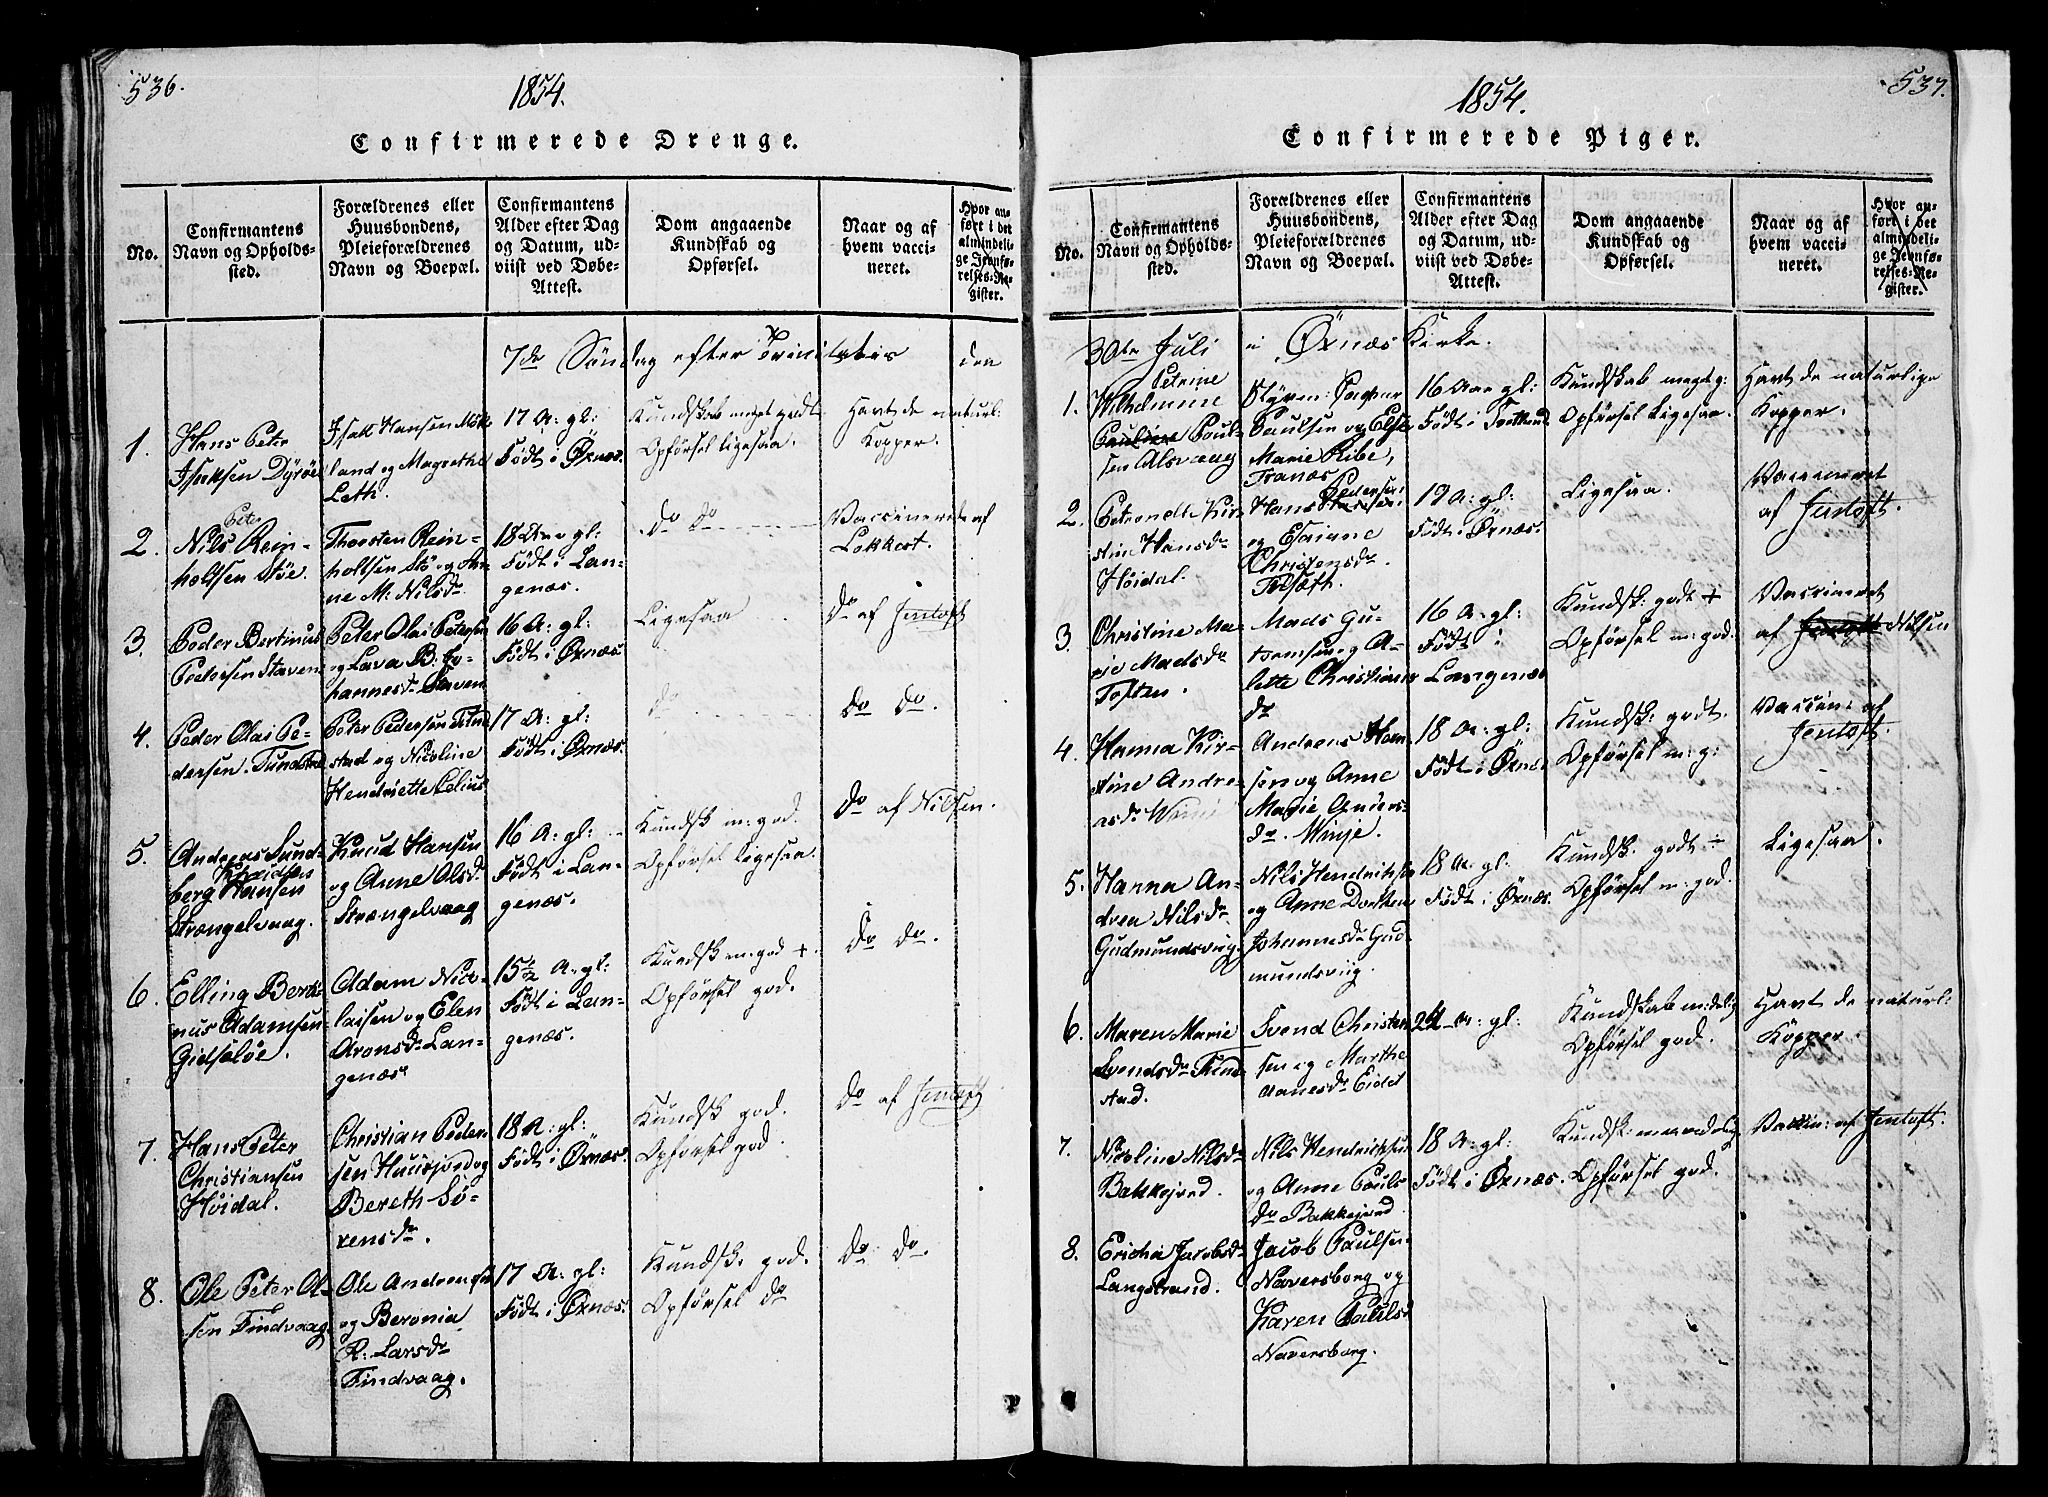 536.
1854.
Confirmerede Drenge.
No.
Confirmantens
Navn og Opholds-
sted.
Forældrenes eller
Huusbondens,
Pleieforældrenes
Navn og Boepæl.
Confirmantens
Alder efter Dag
og Datum, ud-
viist ved Døbe-
Attest.
Dom angaaende
Kundskab og
Opførsel.
Naar og af
hvem vacci-
neret.
Hvor an-
ført i det
almindeli-
ge Jevnfø-
relses-Re-
gister.
7de Søndag efter Trinitatis den
1.
Hans Peter
Isaksen Dyrøe
Isak Hansen Mök-
land og Magrethe
Leth.
17 A: gl:
Födt i Ørnæs.
Kundskab meget godt
Opførsel ligesaa.
Havt de naturl:
Kopper.
2.
Peter
Nils Rein-
holdsen Støe.
Thorsten Rein-
holtsen Stö og An-
ne M: Nilsdr
18 Aar gl:
Födt i Lan-
genæs.
do do
Vassinerede af
Lokkert.
3.
Peder Bertinus
Pedersen Staven
Peter Olai Petersen
og Lava B. Jo-
hannesdr Staven
16 A: gl:
Födt i Ørnæs
Ligesaa
Do af Jentoft
4.
Peder Olai Pe-
dersen. Tundstad
Peter Pedersen Tund
stad og Nicoline
Hendriette Celius
17 A: gl:
Födt i Ørnæs.
do
Do Do.
5.
Andreas Sund-
Knudsen
berg Hansen
Strængelvaag.
Knud Hansen
og Anne Olsd.
Strængelvaag
16 A: gl:
Födt i Lan-
genæs.
Kundsk m: god.
Opførsel ligesaa.
Do af Nilsen.
6.
Elling Berti-
nus Adamsen
Gidsløe.
Adam Nico-
laisen og Elen
Aronsdr Lan-
genæs
15½ A: gl:
Födt i Lan-
genæs.
Kundsk m: god +
Opførsel god.
Do Do.
7.
Hans Peter
Christiansen
Höidal.
Christian Peder-
sen Huusjord og
Bereth Sö-
rensdr.
18 A: gl:
Födt i Ørnæs.
Kundsk god.
Opførsel god
Do af Jentoft
8.
Ole Peter Ol-
sen Findvaag.
Ole Andreasen
og Beronia
R: Larsdr
Findvaag.
17 A: gl:
Födt i Ørnæs.
Kundsk: god.
Opførsel do
Do Do.
537.
1854.
Confirmerede Piger.
No.
Confirmantens
Navn og Opholds-
sted.
Forældrenes eller
Huusbondens,
Pleieforældrenes
Navn og Boepæl.
Confirmantens
Alder efter Dag
og Datum, ud-
viist ved Døbe-
Attest.
Dom angaaende
Kundskab og
Opførsel.
Naar og af
hvem vacci-
neret.
Hvor an-
ført i det
almindeli-
ge Jevnfø-
relses-Re-
gister.
30te Juli i Ørnæs Kirke.
1.
Petrine
Wilhelmine
Pauline Poul-
sen Alsvaag
Paulsen og Else
Marie Ribe,
16 Aar gl:
Födt i
Kundskab meget g:
Opførsel Ligesaa.
Havt de naturlige
Kopper.
2.
Petronelle Kir-
stine Hansdr
Höidal.
Pedersen
Hans
og Esaiane
Christensdr.
19 A: gl:
Födt i Ørnæs.
Ligesaa.
Vaccineret
af Jentoft.
3.
Christine Ma-
rie Madsdr
Toften.
Mads Gu-
tormsen og A-
lette Christians
dr
16 A: gl:
Födt i
Langenæs
Kundsk: godt +
Opførsel m: god.
Vassineret
af Jentoft Nilsen
4.
Hanna Kir-
stine Andre-
asdr Winje
Andreas Han-
sen og Anne
Marie Anders-
dr. Winje.
18 A: gl:
Födt i Ørnæs
Kundsk: godt.
Opførsel m: g:
Vassin: af
Jentoft.
5.
Hanna An-
drea Nilsdr
Gudmundsviig
Nils Hendriksen
og Anne Dorthea
Johannesdr Gud-
mundsviig.
18 A: gl:
Födt i Ørnæs.
Kundsk: godt ÷
Opførsel m: god.
Ligesaa.
6.
Maren Marie
Svendsdr Tund-
stad.
Svend Christen-
sen og Marthe
Aanesdr Eidet
24 A: gl:
Kundskab mdelig
Opførsel god.
Havt de naturl:
Kopper.
7.
Nicoline Nilsdr
Bakkejord.
Nils Hendriksen
og Anne Pauls
dr Bakkejord
18 A: gl:
Födt i Ørnæs.
Opførsel god.
Vaccin: af Jentoft.
8.
Ericha Jacobsdr
Langstrand.
Jacob Paulsen
Naversborg og
Karen Paulsd
Naversborg.